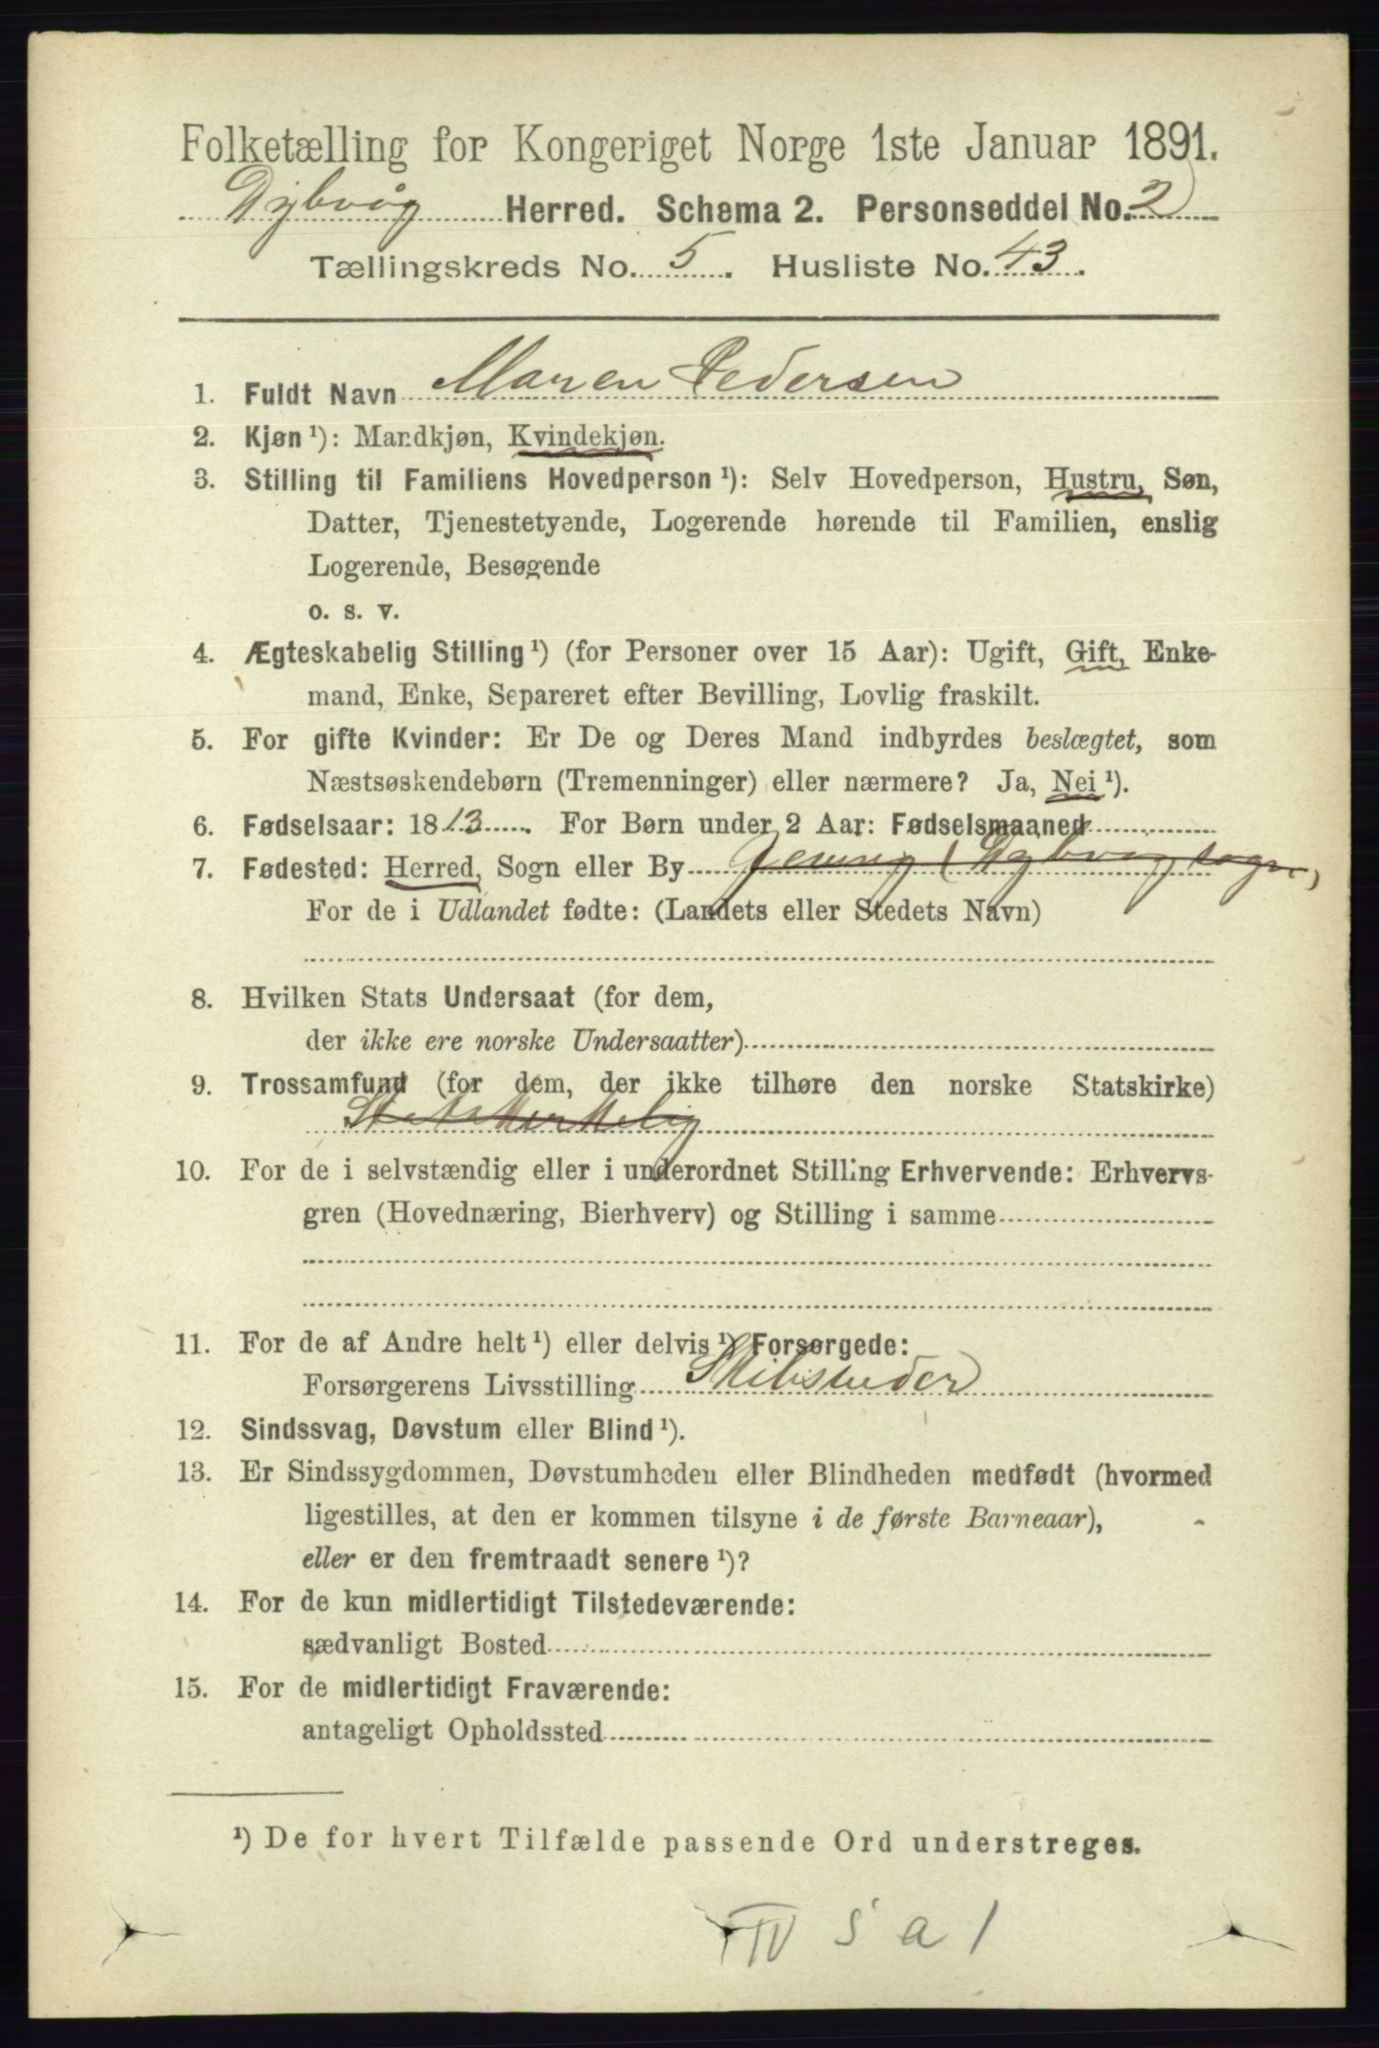 Folketælling for Kongeriget Norge 1ste Januar 1891.
Dybvåg Herred. Schema 2. Personseddel No. 2
Tællingskreds No. 5. Husliste No. 43.
1. Fuldt Navn Maren Pedersen
2. Kjøn ¹): Mandkjøn, Kvindekjøn.
3. Stilling til Familiens Hovedperson ¹): Selv Hovedperson, Hustru, Søn,
Datter, Tjenestetyende, Logerende hørende til Familien, enslig
Logerende, Besøgende
o. s. v.
4. Ægteskabelig Stilling ¹) (for Personer over 15 Aar): Ugift, Gift, Enke-
mand, Enke, Separeret efter Bevilling, Lovlig fraskilt.
5. For gifte Kvinder: Er De og Deres Mand indbyrdes beslægtet, som
Næstsøskendebørn (Tremenninger) eller nærmere? Ja, Nei ¹).
6. Fødselsaar: 1813. For Børn under 2 Aar: Fødselsmaaned
7. Fødested: Herred, Sogn eller By (Dybvåg sogn)
For de i Udlandet fødte: (Landets eller Stedets Navn)
8. Hvilken Stats Undersaat (for dem,
der ikke ere norske Undersaatter)
9. Trossamfund (for dem, der ikke tilhøre den norske Statskirke)
Statskirkelig
10. For de i selvstændig eller i underordnet Stilling Erhvervende: Erhvervs-
gren (Hovednæring, Bierhverv) og Stilling i samme
11. For de af Andre helt ¹) eller delvis ¹) Forsørgede:
Forsørgerens Livsstilling Skibsreder
12. Sindssvag, Døvstum eller Blind ¹).
13. Er Sindssygdommen, Døvstumheden eller Blindheden medfødt (hvormed
ligestilles, at den er kommen tilsyne i de første Barneaar),
eller er den fremtraadt senere ¹)?
14. For de kun midlertidigt Tilstedeværende:
sædvanligt Bosted
15. For de midlertidigt Fraværende:
antageligt Opholdssted
¹) De for hvert Tilfælde passende Ord understreges.
IV 5 a 1